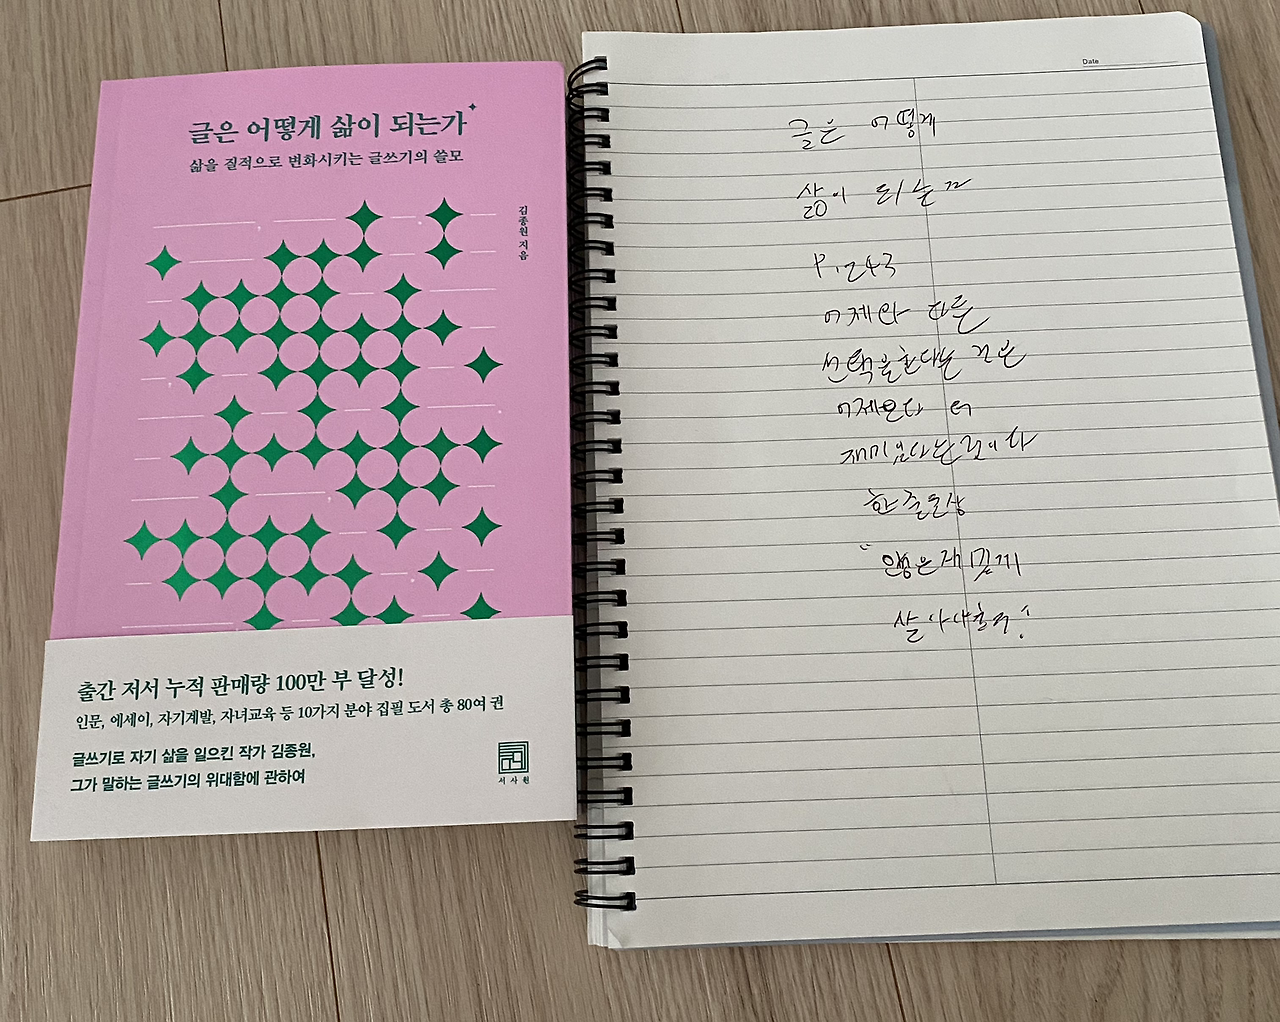 글은 어떻게 삶이 되는가
삶을 질적으로 변화시키는 글쓰기의 쓸모
김종원 지음
출간 저서 누적 판매량 100만 부 달성!
인문, 에세이, 자기계발, 자녀교육 등 10가지 분야 집필 도서 총 80여 권
글쓰기로 자기 삶을 일으킨 작가 김종원,
그가 말하는 글쓰기의 위대함에 관하여
서사원
Date
글은 어떻게
삶이 되는가
P.243
어제와 다른
선택을 한다는 것은
어제보다 더
재미있다는 것이다
한줄단상
재밌게